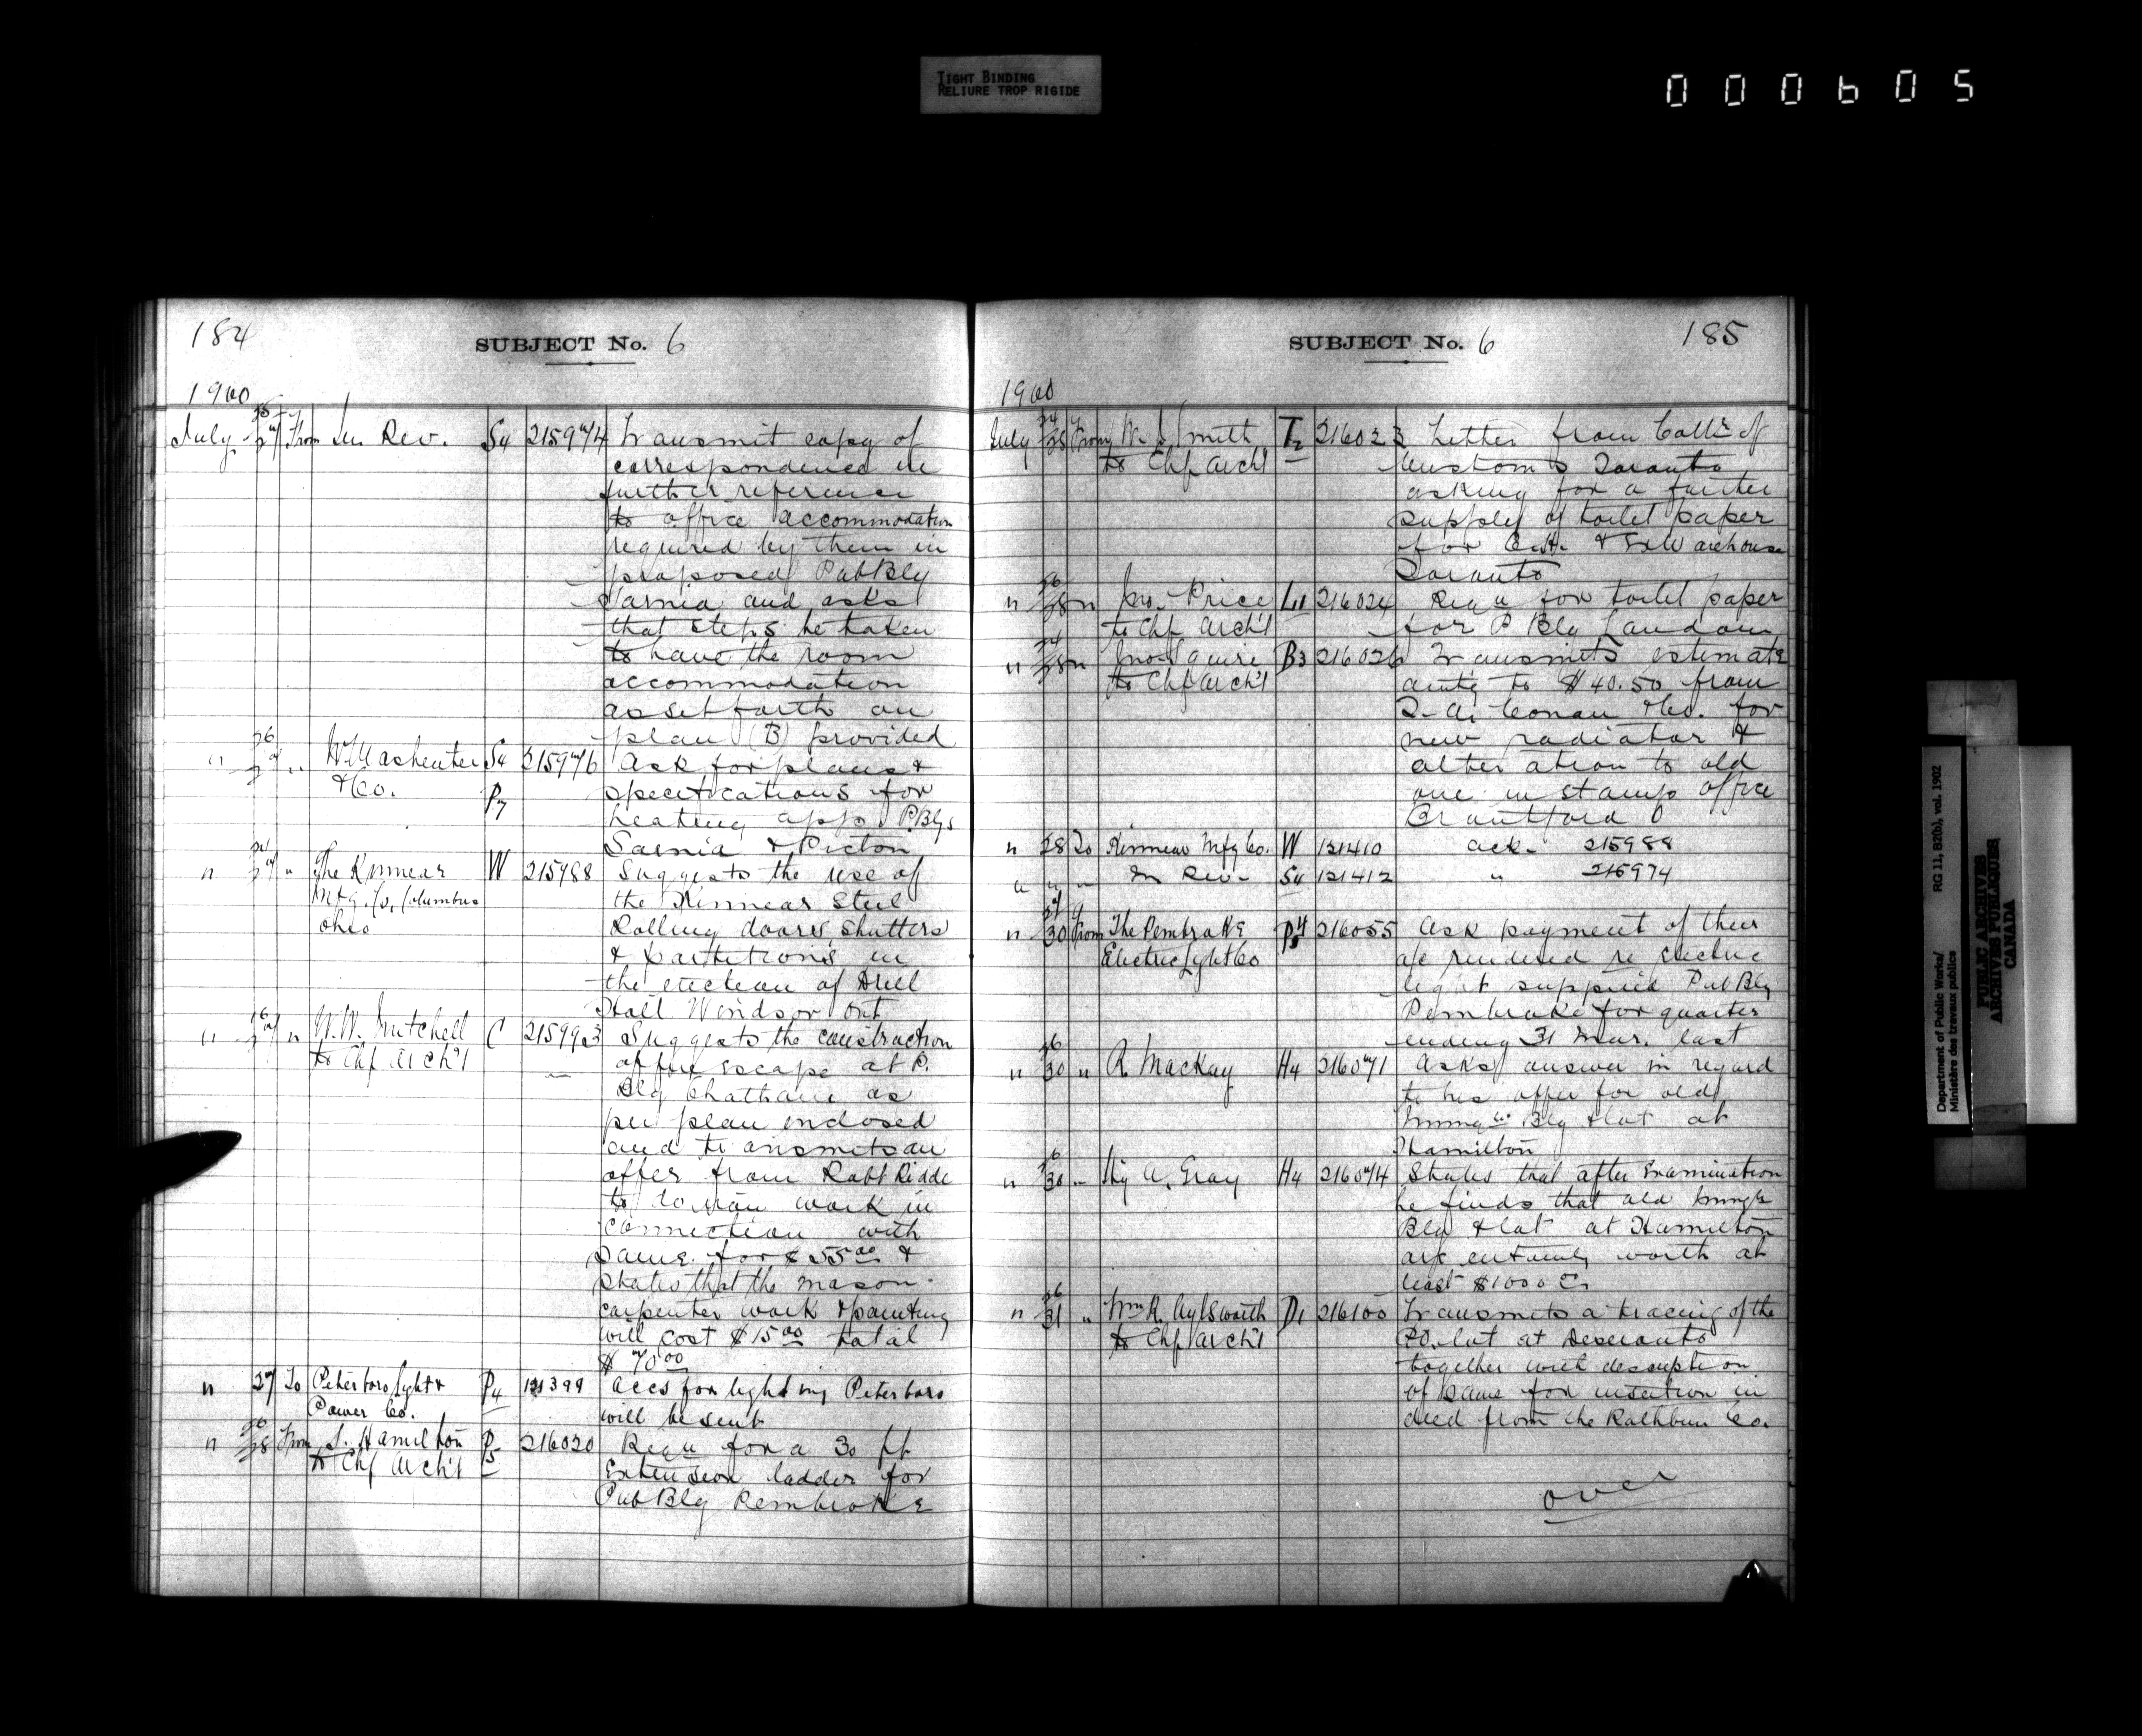 TIGHT BINDING
RELIURE TROP RIGIDE
000605
184
SUBJECT No. 6
1900
July 25/27 From In Rev. S4 215974 Transmit copy of
correspondence in
further reference
to office accommodation
required by them in
proposed Pub Blg
Sarnia and asks
that steps be taken
to have the room
accommodation
as set forth on
plan (B) provided
" 26/27 " W. Mashenter S4 215976 Ask for plans &
& Co. P7 specifications for
heating app. P. Blgs
Sarnia & Picton
" 24/27 " The Kinnear W 215988 Suggests the use of
Mfg. Co. Columbus the Kinnear Steel
Ohio Rolling doors, shutters
& partitions in
the erection of Drill
Hall Windsor Ont
" 26/27 " W. Mitchell C 215993 Suggests the construction
to Chf Arch't of fire escape at P.
Blg Chatham as
per plan enclosed
and transmits an
offer from Robt
to do iron work in
connection with
same for $55.00 &
states that the mason
carpenter work & painting
will cost $15.00 total
$70.00
" 27 To Peterboro Light & P4 121399 Accs for lighting Peterboro
Power Co. will be sent
" 26/28 From J. Hamilton P5 216020 Requ for a 30 ft
to Chf Arch't Extension ladder for
Pub Blg Pembroke
SUBJECT No. 6
185
1900
July 24/28 From W. J. Smith T2 216023 Letter from Collr of
to Chf Arch't Customs Toronto
asking for a further
supply of toilet paper
for C.H. & Ex Warehouse
Toronto
" 26/28 " Jno. Price L1 216024 Requ for toilet paper
to Chf Arch't for P Blg London
" 24/28 " Jno. Squire B3 216026 Transmits estimate
to Chf Arch't amtg to $40.50 from
Conan & Co. for
new radiator &
alteration to old
one in stamp office
Brantford O
" 28 To Kinnear Mfg Co. W 121410 ack. 215988
" " " In Rev. S4 121412 " 215974
" 27/30 From The Pembroke P4 216055 Ask payment of their
Electric Light Co a/c rendered re Electric
light supplied Pub Blg
Pembroke for quarter
ending 31 Mar. last
" 26/30 " R. Mackay H4 216071 Asks answer in regard
to his offer for old
Blg & lot at
Hamilton
" 26/30 " A. Gray H4 216074 States that after Examination
he finds that old
Blg & lot at Hamilton
are certainly worth at
least $1000
" 26/31 " Wm R. Aylsworth D1 216100 Transmits a tracing of the
to Chf Arch't P.O. lot at Deseronto
together with description
of same for insertion in
deed from the Rathbun Co.
over
Department of Public Works/
Ministère des travaux publics
RG 11, B2(b), vol. 1902
PUBLIC ARCHIVES
ARCHIVES PUBLIQUES
CANADA